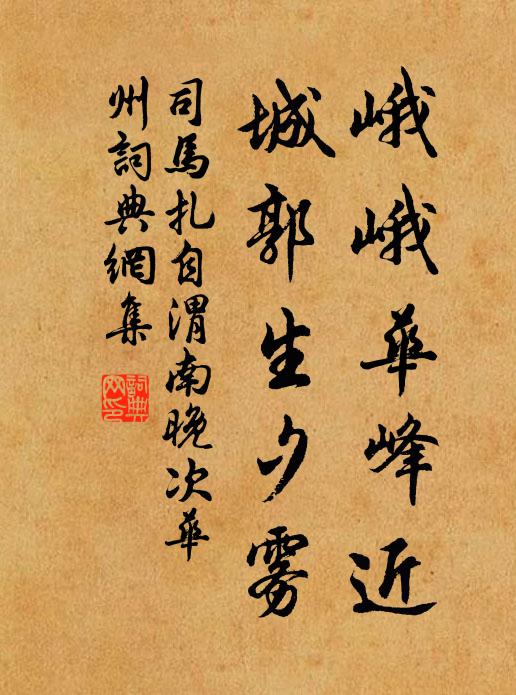 峨峨華峰近
城郭生夕霧
司馬扎自渭南晚次華
州詞典網集
詞典
网印